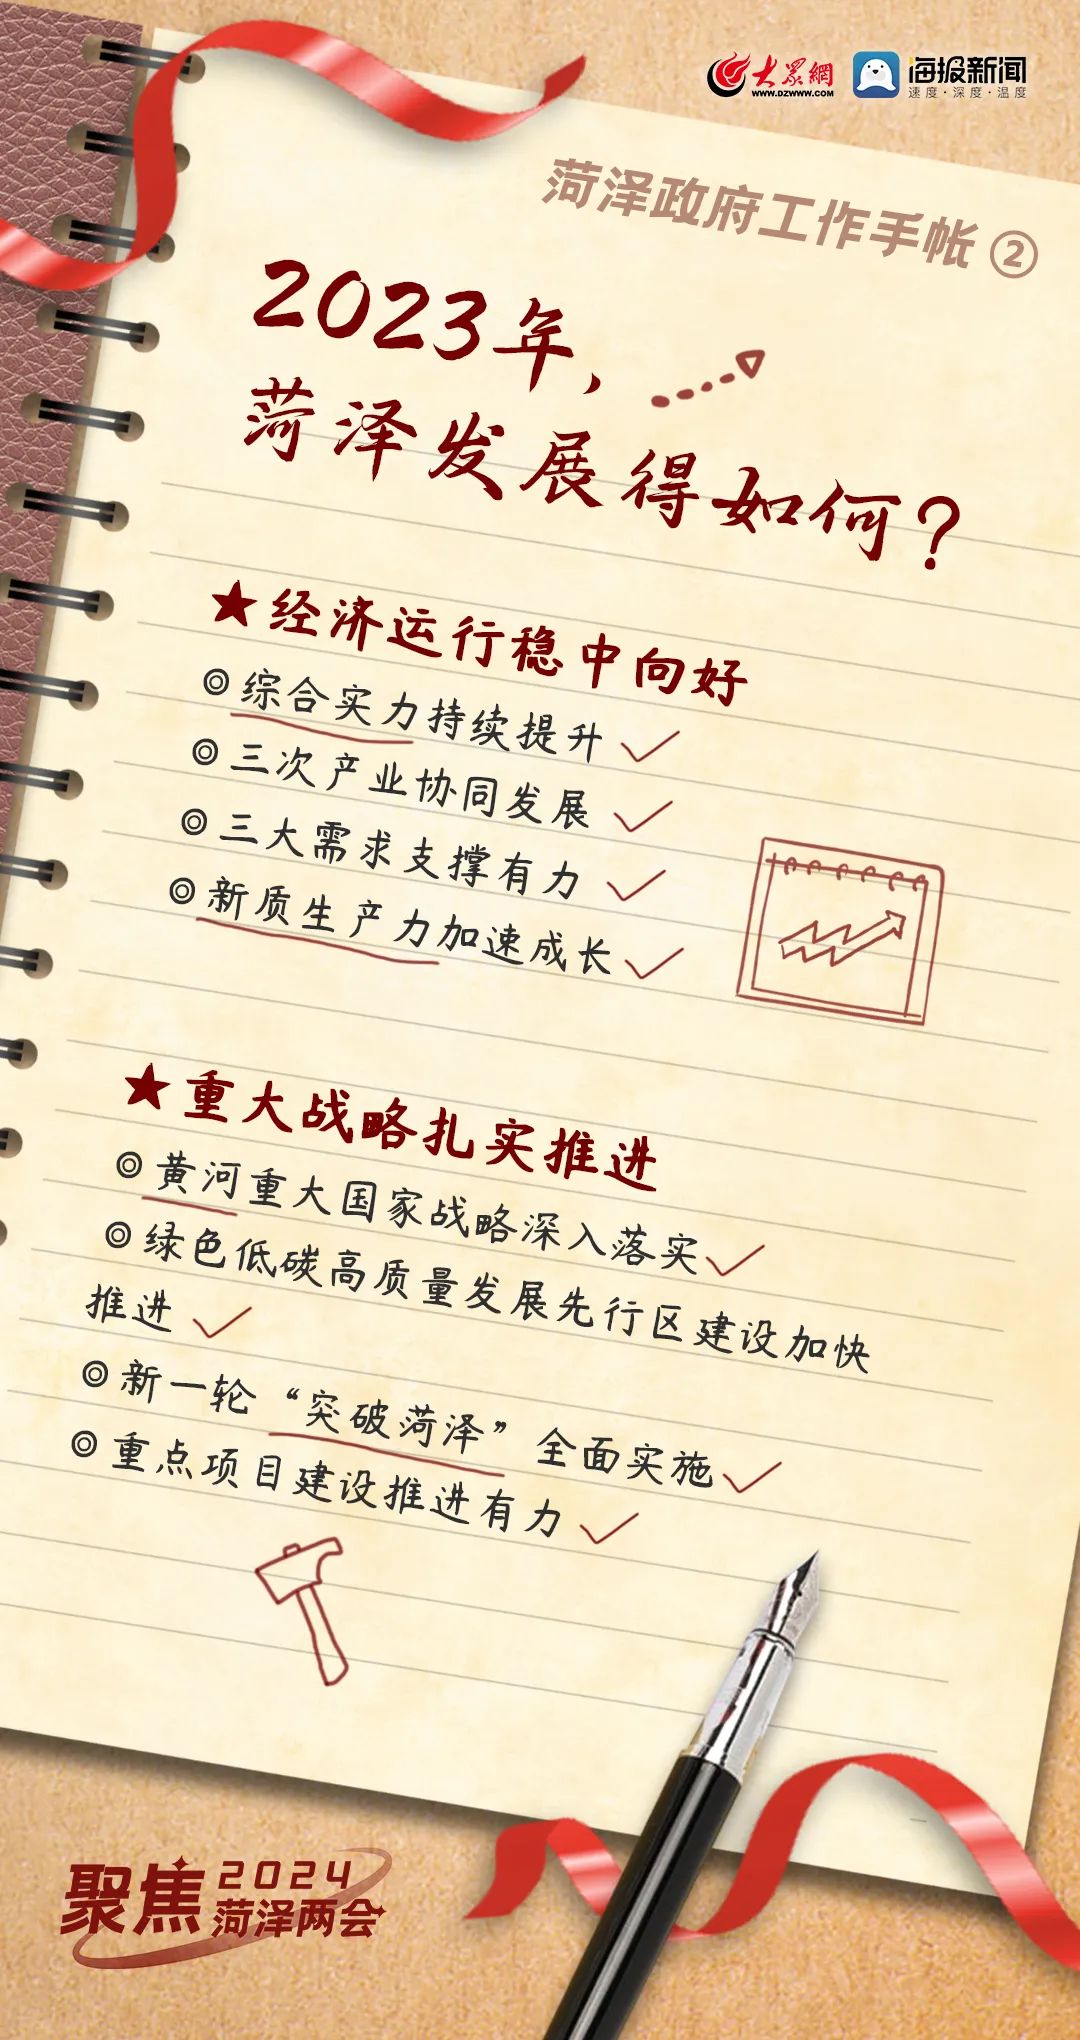 大众網
WWW.DZWWW.COM
海报新闻
速度·深度·温度
菏泽政府工作手帐②
2023年，
菏泽发展得如何？
★经济运行稳中向好
◎综合实力持续提升
◎三次产业协同发展
◎三大需求支撑有力
◎新质生产力加速成长
★重大战略扎实推进
◎黄河重大国家战略深入落实
◎绿色低碳高质量发展先行区建设加快
推进
◎新一轮“突破菏泽”全面实施
◎重点项目建设推进有力
聚焦2024
菏泽两会